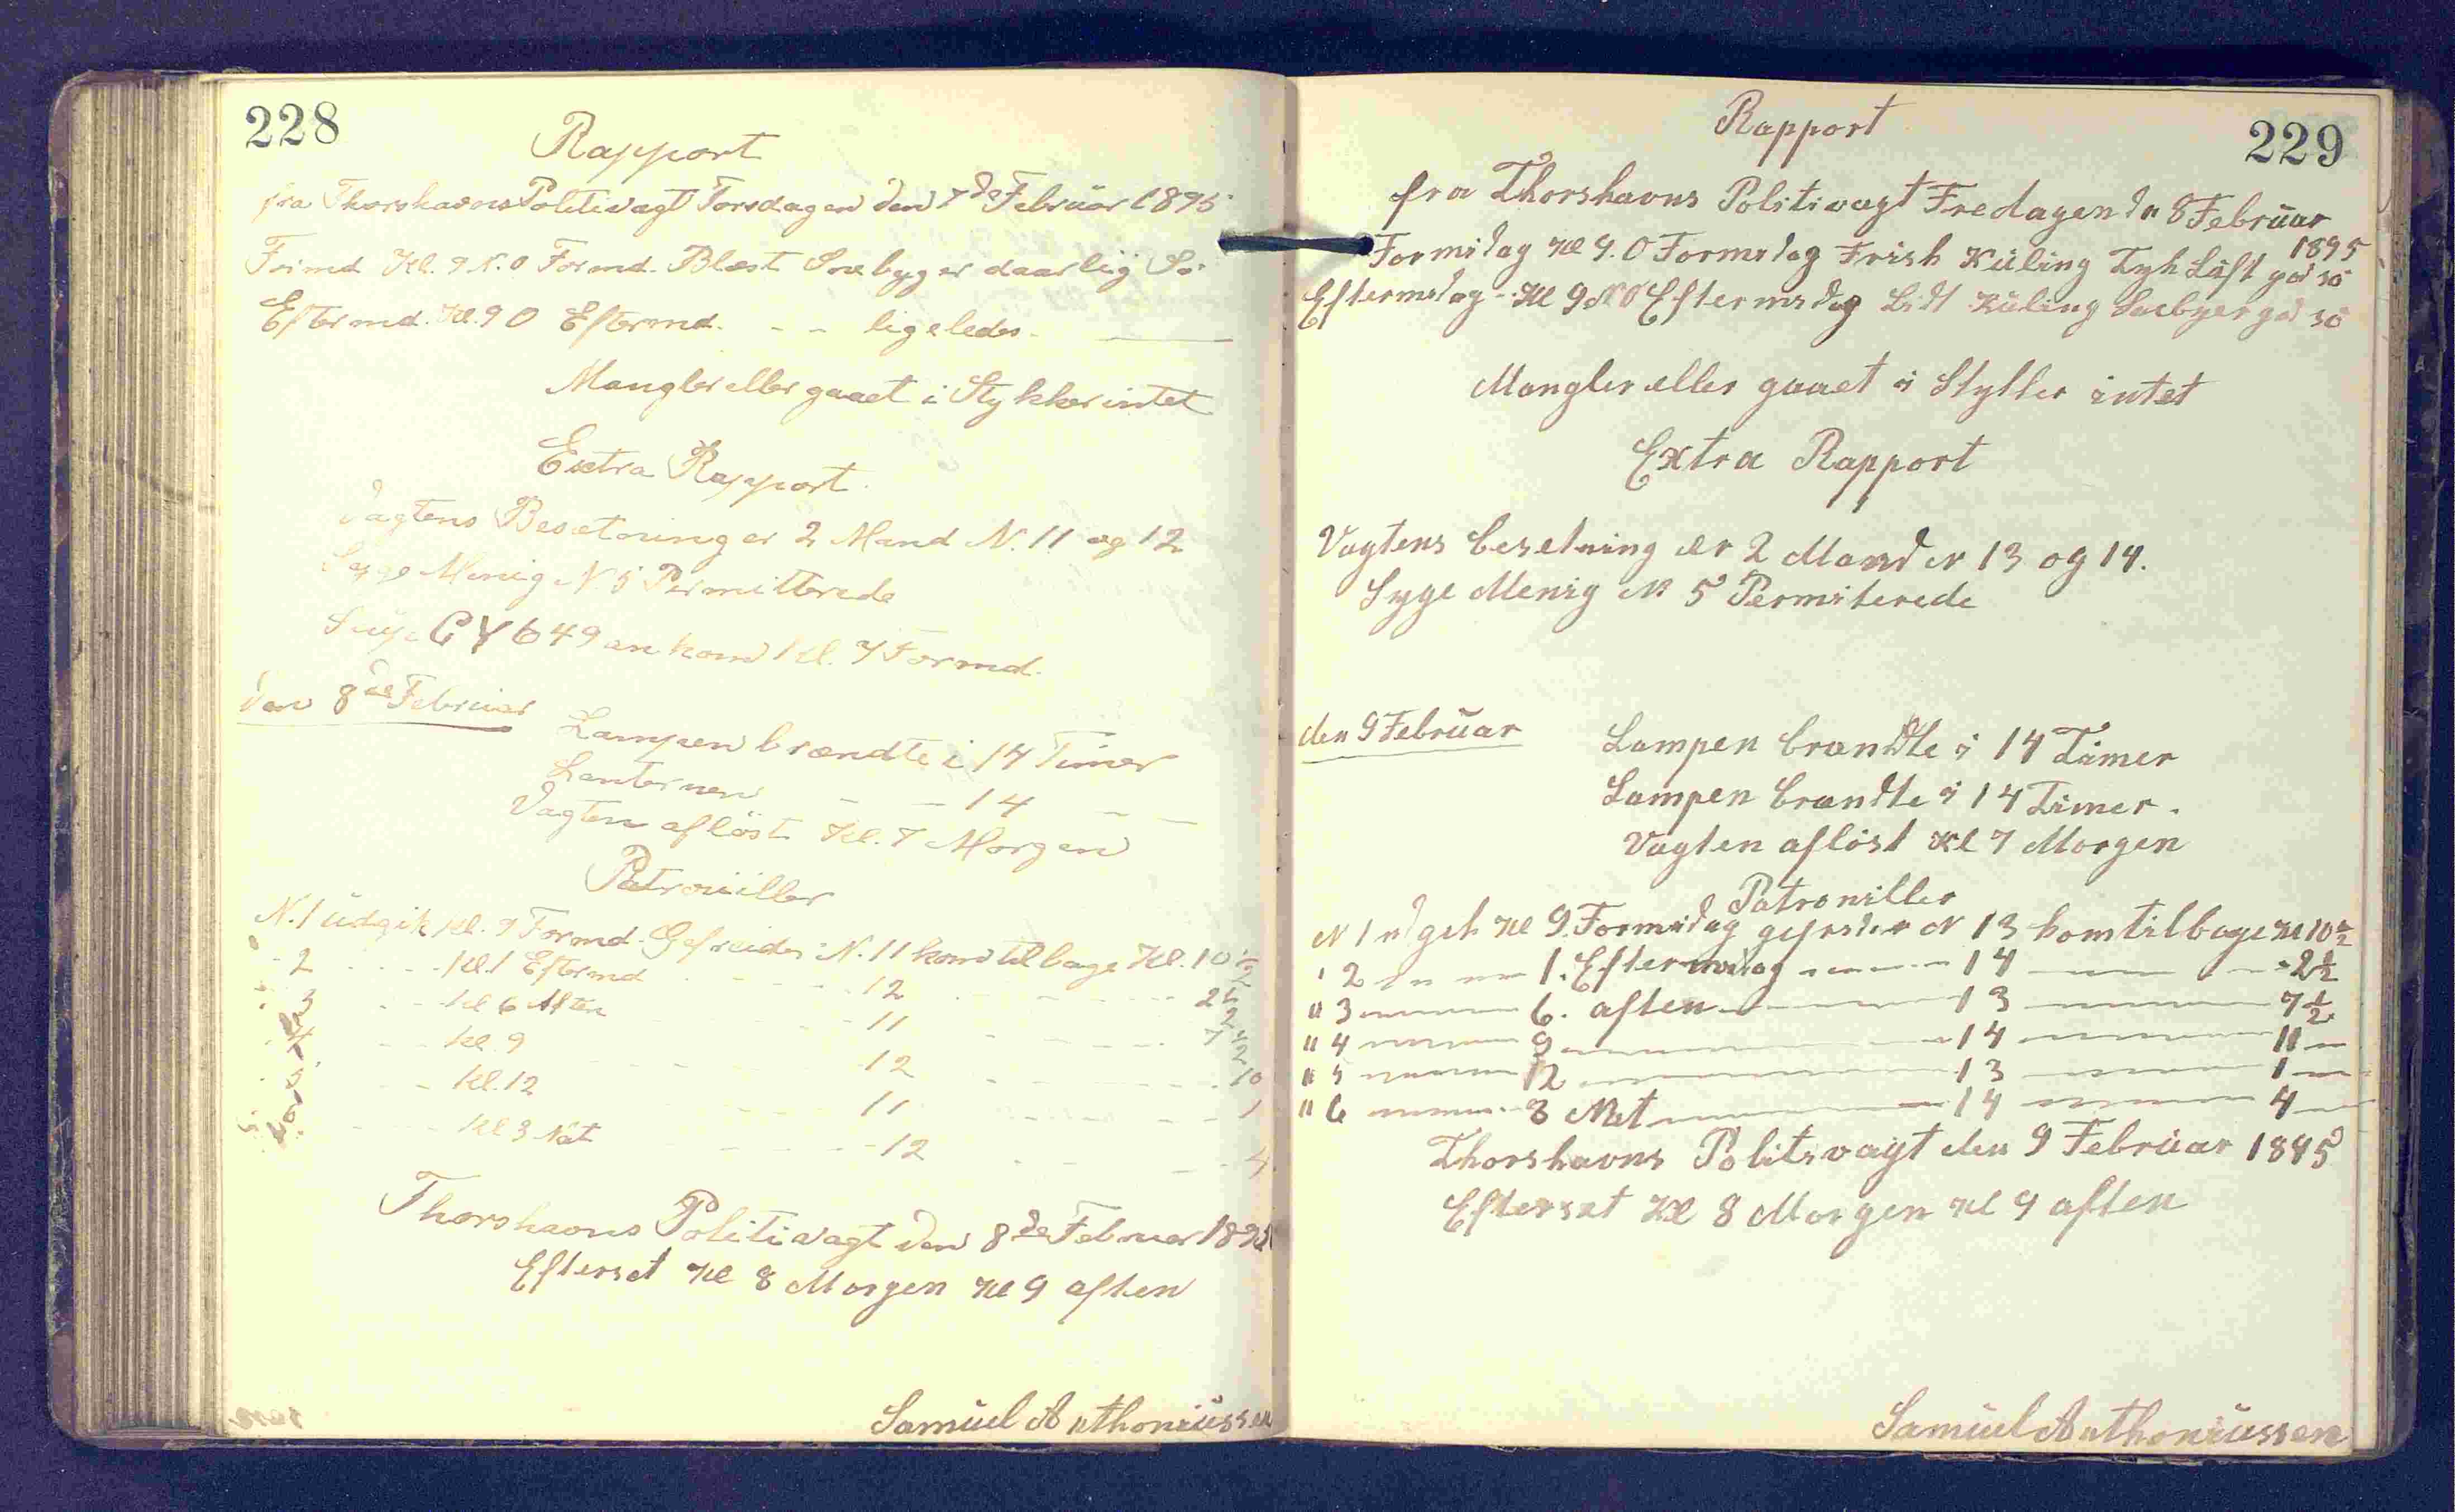 228
Rapport
fra Thorshavns Politivagt Torsdagen den 7de Februar 1895
Formd. Kl. 9 N. O Formd. Blæst Snebyger daarlig Sö
Eftermd. Kl. 9 O Eftermd. - - ligeledes -
Mangler eller gaaet i Stykker intet
Extra Rapport.
Vagtens Besætning er 2 Mand N. 11 og 12
Syge Menig N 5 Permitterede
CY 649 ankom kl. 7 Formd.
den 8de Februar
Lampen brændte i 14 Timer
Lanternen - - 14 - -
Vagten aflöst Kl. 7 Morgen
Patrouiller
N. 1 udgik kl. 9 Formd. Gefreider N. 11 kom tilbage Kl. 10 1/2
- 2 - - - - Kl. 1 Eftermd - - - - 12 - - - - 2 1/2
3 - - Kl 6 Aften - - 11 - - - - 7 1/2
4 - - Kl. 9 - - - - 12 - - - - 10
- - Kl. 12 - - - 11 - - - - 1
- - - - Kl 3 Nat - - - - 12 - - - - 4
Thorshavns Politivagt den 8de Februar 1895
Efterset Kl 8 Morgen Kl 9 aften
Samuel Anthoniussen
229
Rapport
fra Thorshavns Politivagt Fredagen dn 8 Februar
1895
Formidag Kl 9. O Formidag Frisk Kuling Tyk Luft god sö
Eftermidag - Kl 9 N O Eftermidag Lidt Kuling Snebyer god sö
Mangler eller gaaet i Stykker intet
Extra Rapport
Vagtens beselning er 2 Mand N 13 og 14.
Syge Menig N 5 Permiterede
den 9 Februar
Lampen brændte i 14 Timer
Lampen brændte i 14 Timer.
Vagten aflöst Kl 7 Morgen
Patrouiller
N 1 udgek Kl 9. Formidag gefrider N 13 kom tilbage Kl 10 1/2
" 2 - - - 1. Eftermidag - - - 14 - - - 2 1/2
" 3 - - - 6. aften - - - 13 - - - 7 1/2
" 4 - - - 9 - - - 14 - - - 11 -
" 5 - - - 12 - - - 13 - - - 1 -
" 6 - - - 3 Nat - - - 14 - - - 4 -
Thorshavns Politivagt den 9 Februar 1895
Efterset Kl 8 Morgen Kl 9 aften
Samuel Anthoniussen